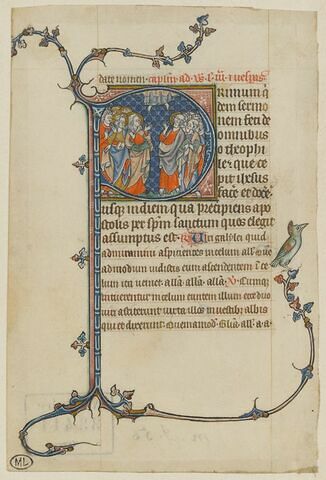 date nomen. caplm ad
rimum q
dem sermo
nem feci de
omnibus
o theophi
le que ce
pit ihesus
facere et doce
usque in diem qua precipiens apo
stolis per spm sanctum quos elegit
assumptus est. R Viri galylei quid
admiramini aspicientes in celum all. Que
admodum vidistis eum ascendentem i ce
lum ita veniet. alla. alla. alla. V Cumq
intuerentur in celum euntem illum ecce duo
viri astiterunt iuxta illos in vestib albis
qui et dixerunt. Quemamod. Glia. all. a. a
ML